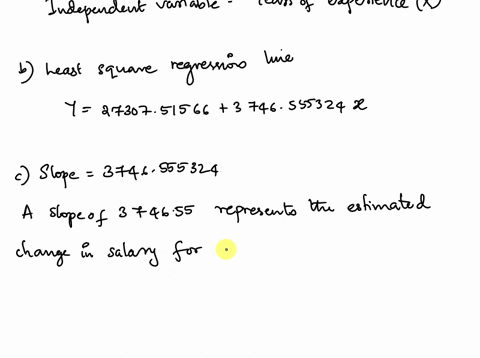 Independent variable = Years of experience (X)
b) Least square regression line
Y = 27307.51566 + 3746.555324 x
c) Slope = 3746.555324
A slope of 3746.55 represents the estimated
change in salary for